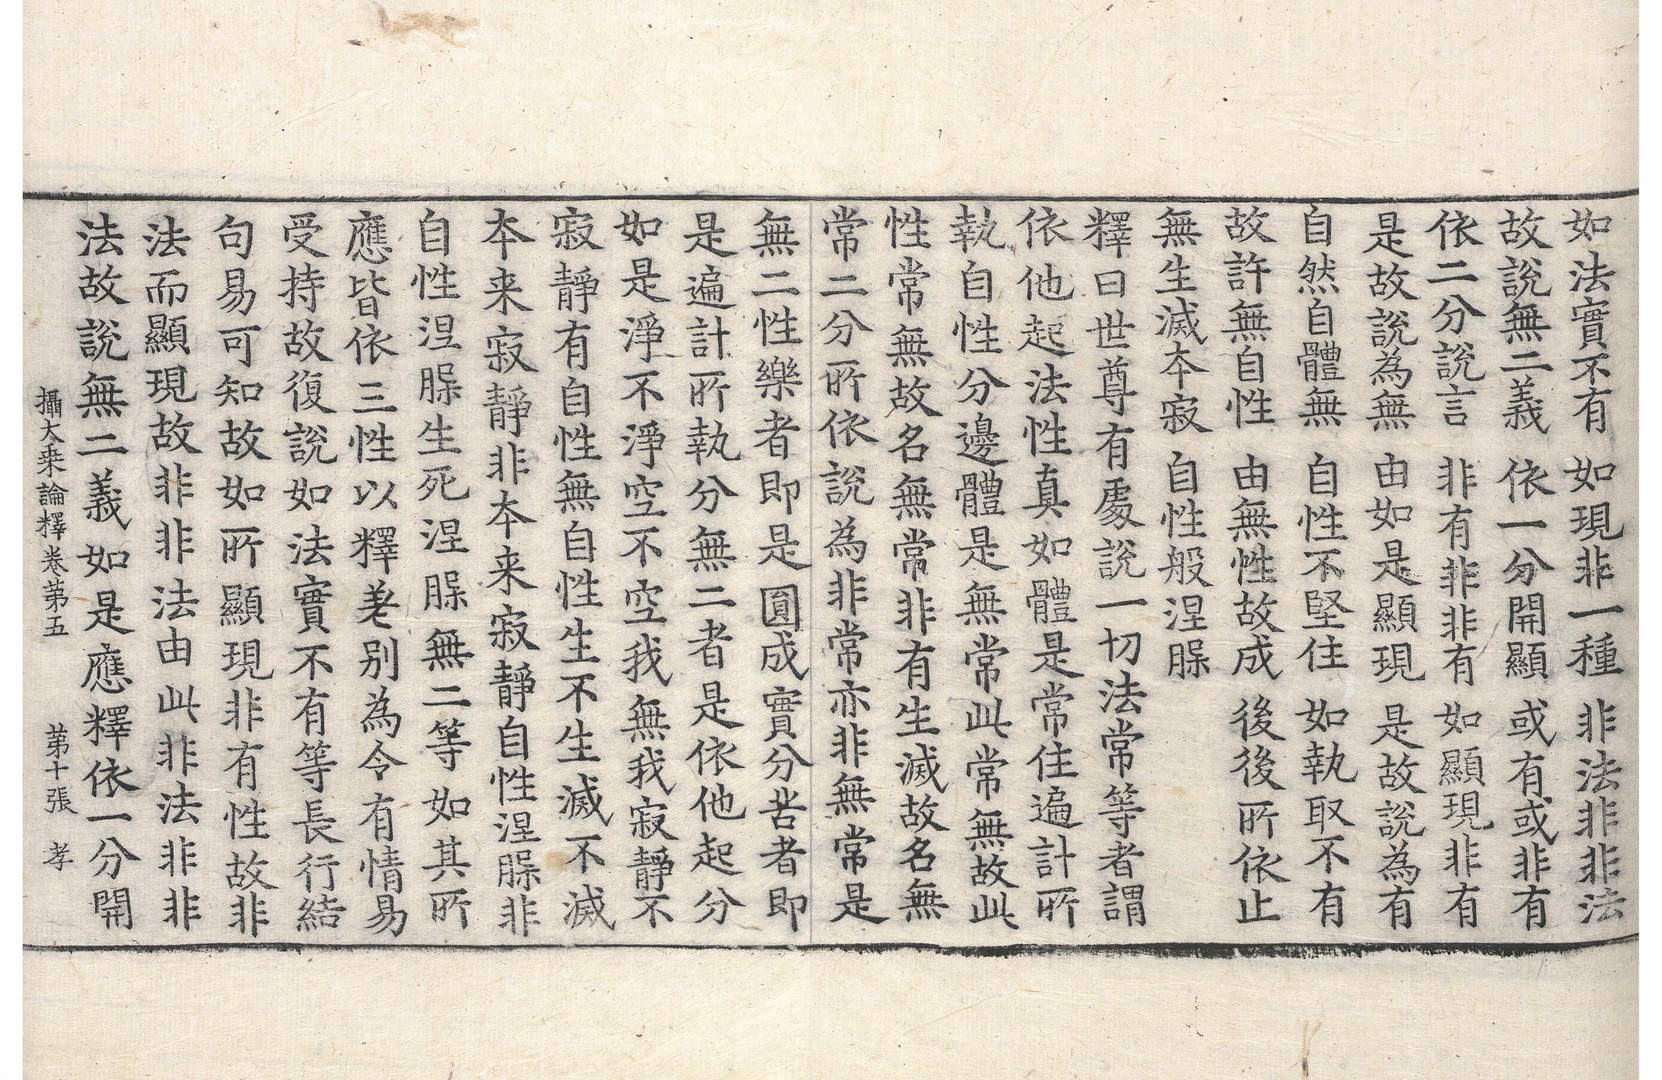 如法實不有 如現非一種 非法非非法
故說無二義 依一分開顯 或有或非有
依二分說言 非有非非有 如顯現非有
是故說為無 由如是顯現 是故說為有
自然自體無 自性不堅住 如執取不有
故許無自性 由無性故成 後後所依止
無生滅夲寂 自性般涅脵
釋曰世尊有處說一切法常等者謂
依他起法性真如體是常住遍計所
執自性分邊體是無常此常無故此
性常無故名無常非有生滅故名無
常二分所依說為非常亦非無常是
無二性樂者即是圓成實分苦者即
是遍計所執分無二者是依他起分
如是淨不淨空不空我無我寂靜不
寂靜有自性無自性生不生滅不滅
夲来寂靜非夲来寂靜自性涅脵非
自性涅脵生死涅脵無二等如其所
應皆依三性以釋差別為令有情易
受持故復說如法實不有等長行結
句易可知故如所顯現非有性故非
法而顯現故非非法由此非法非非
法故說無二義如是應釋依一分開
攝大乗論釋卷苐五 苐十張 孝